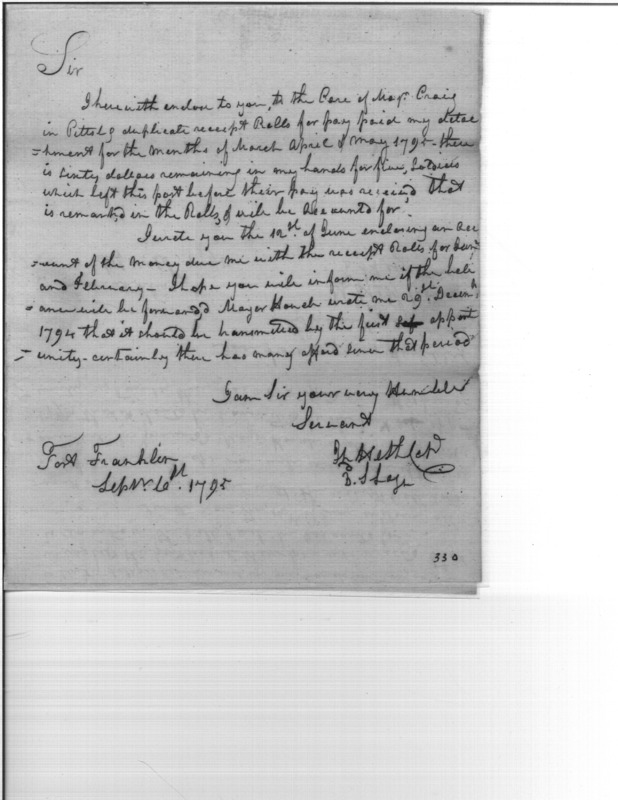 Sir
I herewith enclose to you, to the Care of Majr. Craig
in Pittsbg duplicate receipt Rolls for pay paid my detac
=hment for the months of March April & May 1795 - there
is sixty dollars remaining in my hands for five Soldiers
which left this post before their pay was received that
is remarkd in the Rolls, & will be Accounted for,
I wrote you the 12th. of June enclosing an acc
=ount of the money due me with the receipt Rolls for
and February - I hope you will inform me if the bali
=ance will be forwardd Mayor wrote me 29th. Decemr.
1794 that it should be transmitted by the first oppert
=unity - certainly there has many offerd since that period
I am Sir your very Humble
Servant
Fort Franklin
Sept 1795
330